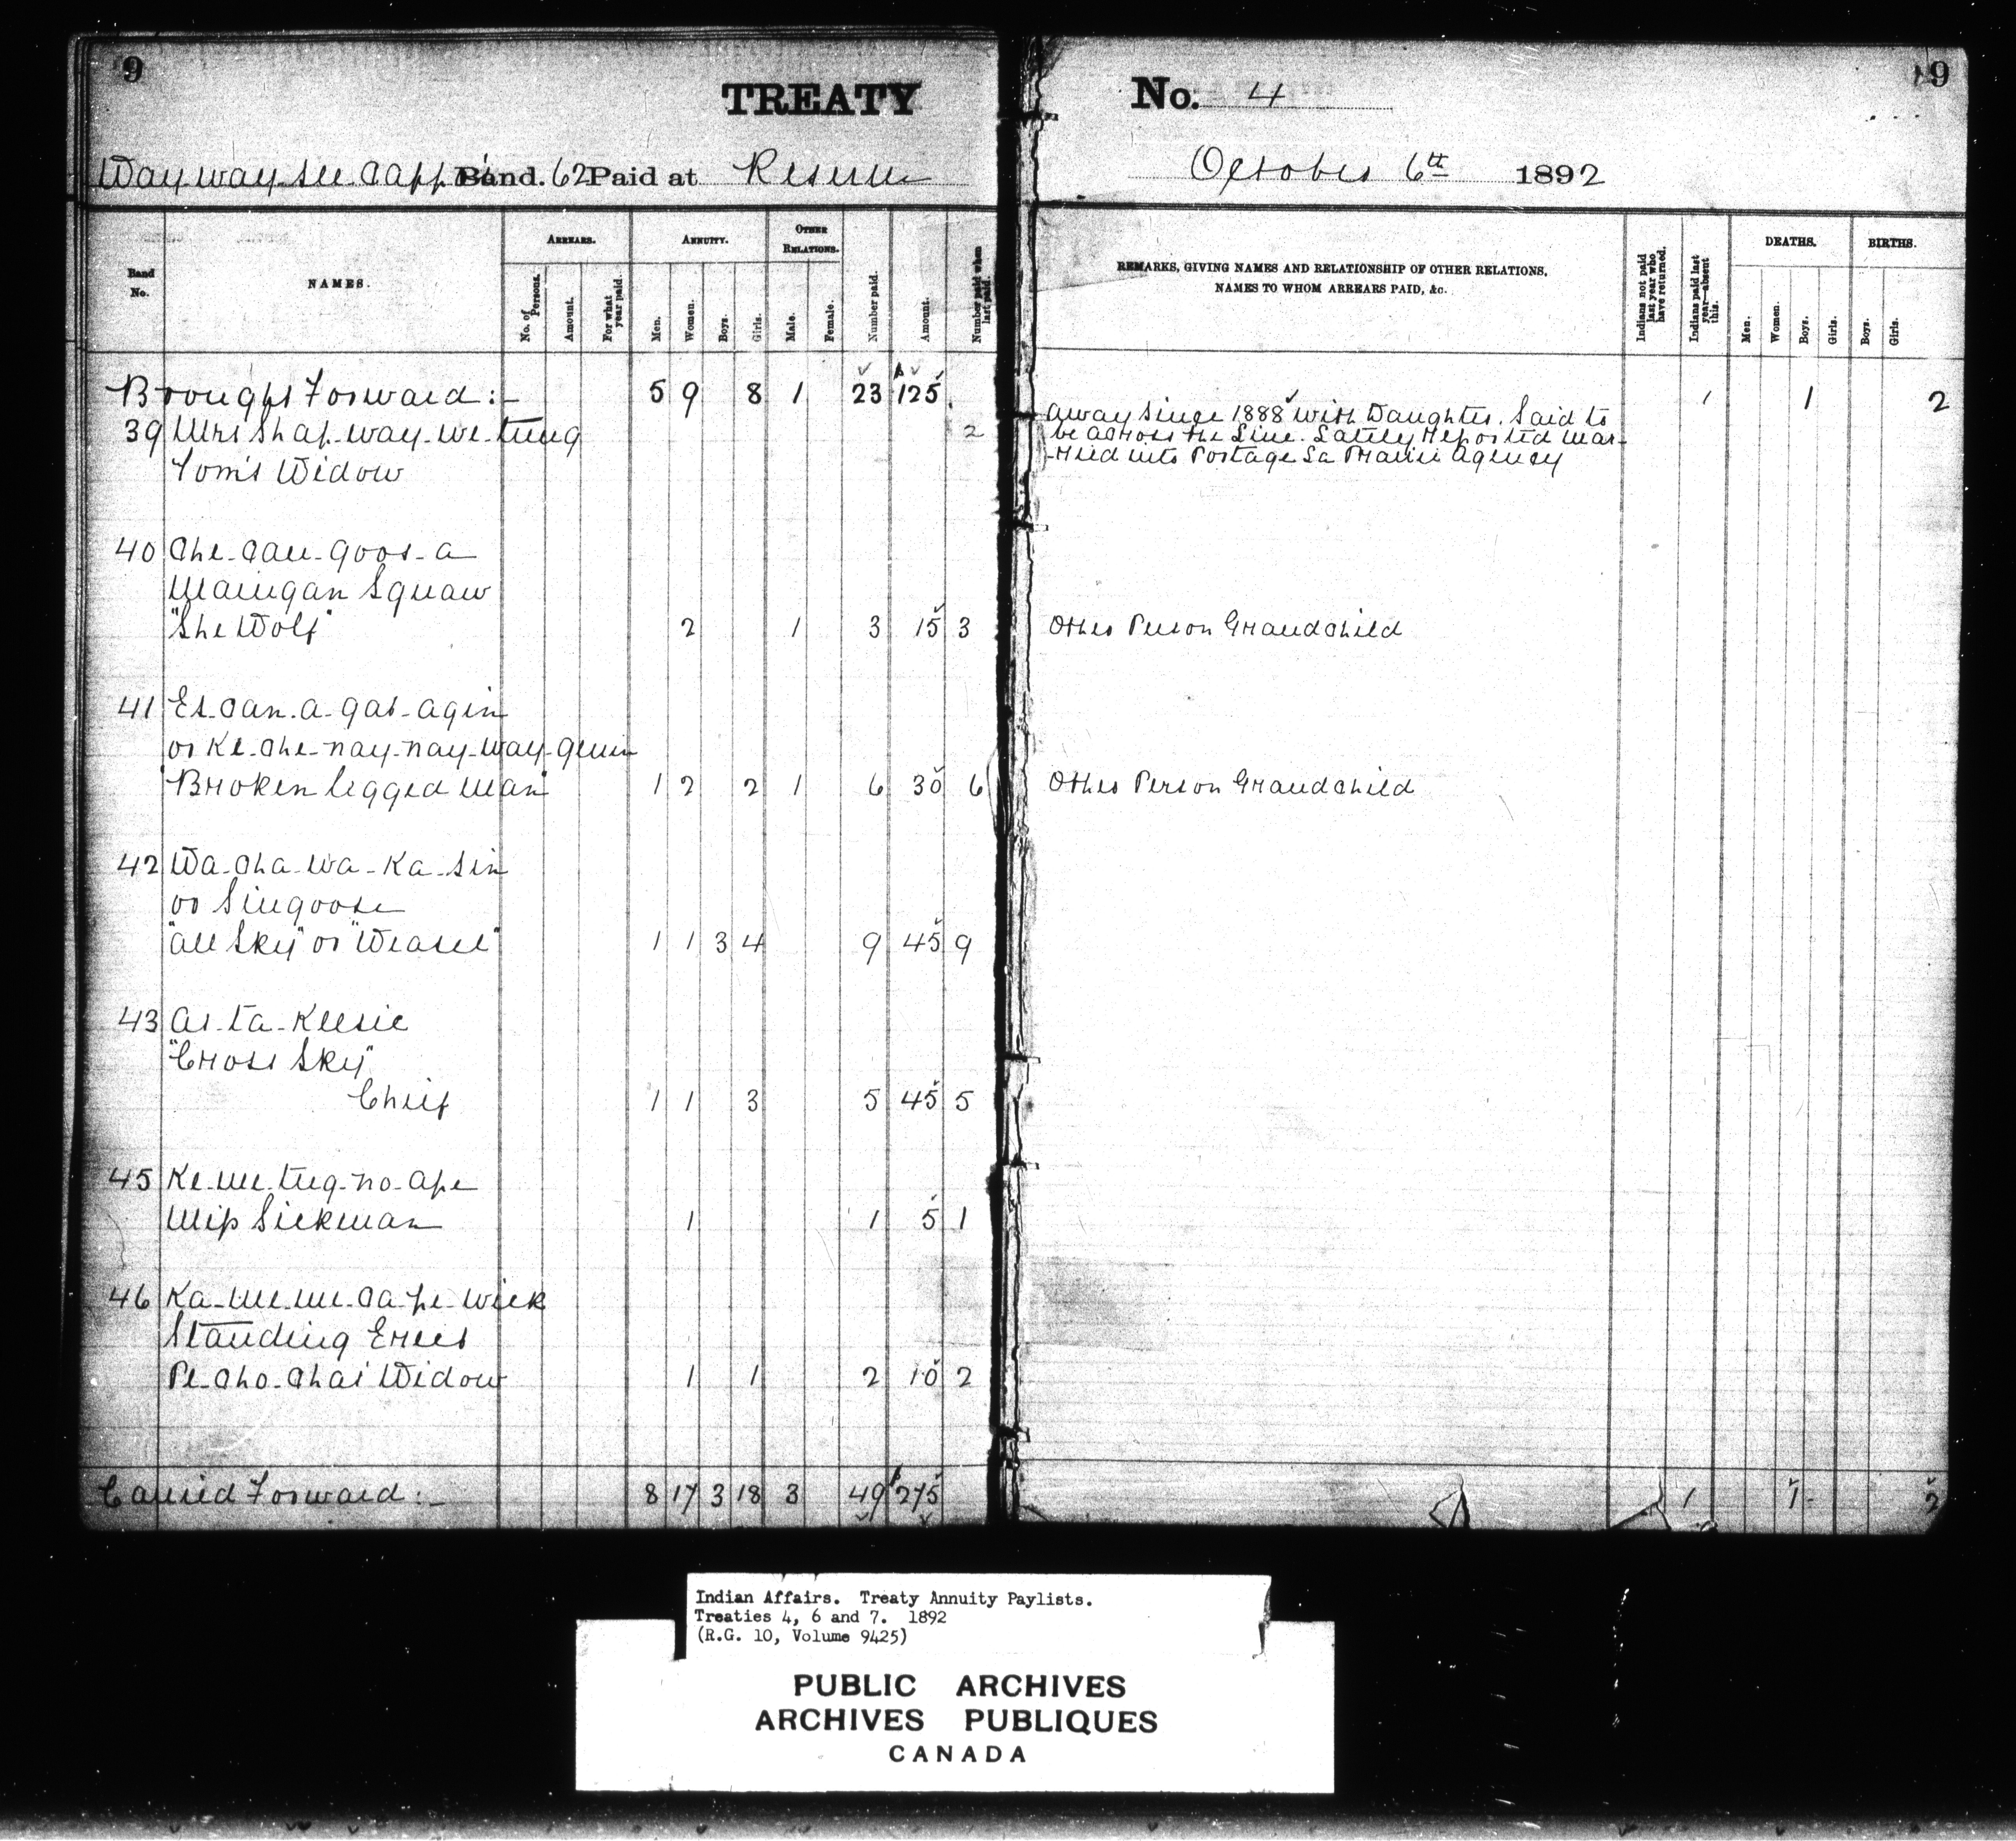 9
TREATY No. 4
9
Way way see Capp's Band. 62 Paid at Reserve October 6th 1892
Band No.
NAMES.
ARREARS.
No. of Persons.
Amount.
For what year paid.
ANNUITY.
Men.
Women.
Boys.
Girls.
OTHER RELATIONS.
Male.
Female.
Number paid.
Amount.
Number paid when last paid.
REMARKS, GIVING NAMES AND RELATIONSHIP OF OTHER RELATIONS,
NAMES TO WHOM ARREARS PAID, &c.
Indians not paid last year who have returned.
Indians paid last year—absent this.
DEATHS.
Men.
Women.
Boys.
Girls.
BIRTHS.
Boys.
Girls.
Brought Forward:- 5 9 8 1 23 125 1 1 2
39 Mrs Shap-way-we-tung 2 Away since 1888 with Daughter. Said to
be across the Line. Lately reported mar-
Tom's Widow -ried into Portage La Prairie Agency
40 Che-cau-goos-a
Maingan Squaw
"She Wolf" 2 1 3 15 3 Other Person Grandchild
41 Es-can-a-gas-agin
or Ke-che-nay-nay-way-genin
"Broken legged Man" 1 2 2 1 6 30 6 Other Person Grandchild
42 Wa-cha-wa-Ka-sin
or Singoose
"All Sky" or "Weasel" 1 1 3 4 9 45 9
43 As-ta-Keesic
"Cross Sky"
Chief 1 1 3 5 45 5
45 Ke-me-tug-no-ape
Miss Sickman 1 1 5 1
46 Ka-me-me-ca-pe-wick
Standing Erect
Pe-cho-chas' Widow 1 1 2 10 2
Carried Forward:- 8 17 3 18 3 49 275 1 1 2
Indian Affairs. Treaty Annuity Paylists.
Treaties 4, 6 and 7. 1892
(R.G. 10, Volume 9425)
PUBLIC ARCHIVES
ARCHIVES PUBLIQUES
CANADA